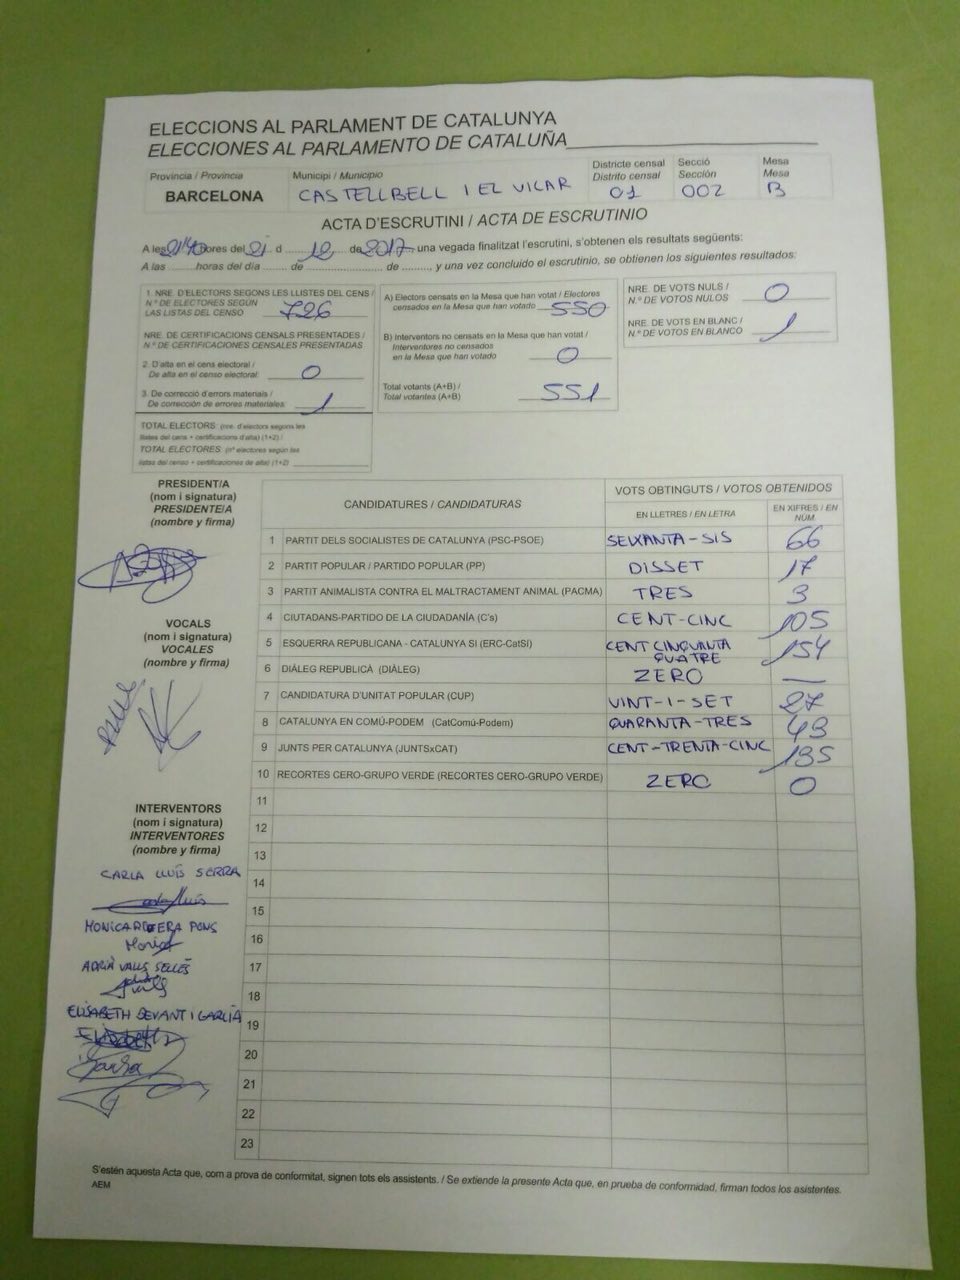 ELECCIONS AL PARLAMENT DE CATALUNYA
ELECCIONES AL PARLAMENTO DE CATALUÑA
Província / Provincia
BARCELONA
Municipi / Municipio
CASTELLBELL I EL VILAR
Districte censal
Distrito censal
01
Secció
Sección
002
Mesa
Mesa
B
ACTA D'ESCRUTINI / ACTA DE ESCRUTINIO
A les 21'40 hores del 21 d 12 de 2017 una vegada finalitzat l'escrutini, s'obtenen els resultats següents:
A las ........ horas del día ........ de ........ de ........, y una vez concluido el escrutinio, se obtienen los siguientes resultados:
1. NRE. D'ELECTORS SEGONS LES LLISTES DEL CENS /
N.º DE ELECTORES SEGÚN
LAS LISTAS DEL CENSO 726
NRE. DE CERTIFICACIONS CENSALS PRESENTADES /
N.º DE CERTIFICACIONES CENSALES PRESENTADAS
2. D'alta en el cens electoral /
De alta en el censo electoral: 0
3. De correcció d'errors materials /
De corrección de errores materiales: 1
TOTAL ELECTORS: (nre. d'electors segons les
llistes del cens + certificacions d'alta) (1+2) /
TOTAL ELECTORES: (nº electores según las
listas del censo + certificaciones de alta) (1+2)
A) Electors censats en la Mesa que han votat / Electores
censados en la Mesa que han votado 550
B) Interventors no censats en la Mesa que han votat /
Interventores no censados
en la Mesa que han votado 0
Total votants (A+B) /
Total votantes (A+B) 551
NRE. DE VOTS NULS /
N.º DE VOTOS NULOS 0
NRE. DE VOTS EN BLANC /
N.º DE VOTOS EN BLANCO 1
PRESIDENT/A
(nom i signatura)
PRESIDENTE/A
(nombre y firma)
VOCALS
(nom i signatura)
VOCALES
(nombre y firma)
INTERVENTORS
(nom i signatura)
INTERVENTORES
(nombre y firma)
CARLA LLUÍS SERRA
MONICA RIERA PONS
ADRIÀ VALLS SELLÉS
ELISABETH DEVANT I GARCIA
CANDIDATURES / CANDIDATURAS
VOTS OBTINGUTS / VOTOS OBTENIDOS
EN LLETRES / EN LETRA
EN XIFRES / EN
NÚM.
1 PARTIT DELS SOCIALISTES DE CATALUNYA (PSC-PSOE) SEIXANTA-SIS 66
2 PARTIT POPULAR / PARTIDO POPULAR (PP) DISSET 17
3 PARTIT ANIMALISTA CONTRA EL MALTRACTAMENT ANIMAL (PACMA) TRES 3
4 CIUTADANS-PARTIDO DE LA CIUDADANÍA (C's) CENT-CINC 105
5 ESQUERRA REPUBLICANA - CATALUNYA SI (ERC-CatSí) CENT CINQUANTA QUATRE 154
6 DIÀLEG REPUBLICÀ (DIÀLEG) ZERO —
7 CANDIDATURA D'UNITAT POPULAR (CUP) VINT-I-SET 27
8 CATALUNYA EN COMÚ-PODEM (CatComú-Podem) QUARANTA-TRES 43
9 JUNTS PER CATALUNYA (JUNTSxCAT) CENT-TRENTA-CINC 135
10 RECORTES CERO-GRUPO VERDE (RECORTES CERO-GRUPO VERDE) ZERO 0
11
12
13
14
15
16
17
18
19
20
21
22
23
S'estén aquesta Acta que, com a prova de conformitat, signen tots els assistents. / Se extiende la presente Acta que, en prueba de conformidad, firman todos los asistentes.
AEM